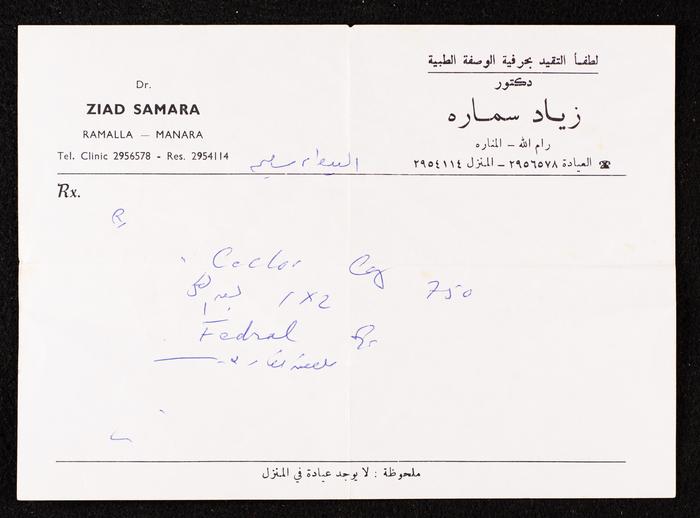 Dr.
ZIAD SAMARA
RAMALLA — MANARA
Tel. Clinic 2956578 - Res. 2954114
لطفـاً التقيد بحرفية الوصفة الطبية
دكتور
زياد سماره
رام الله — المناره
☎ العيادة ٢٩٥٦٥٧٨ - المنزل ٢٩٥٤١١٤
Rx.
Ceclor 750
1 x 2
Fedral
ملحوظة : لا يوجد عيادة في المنزل